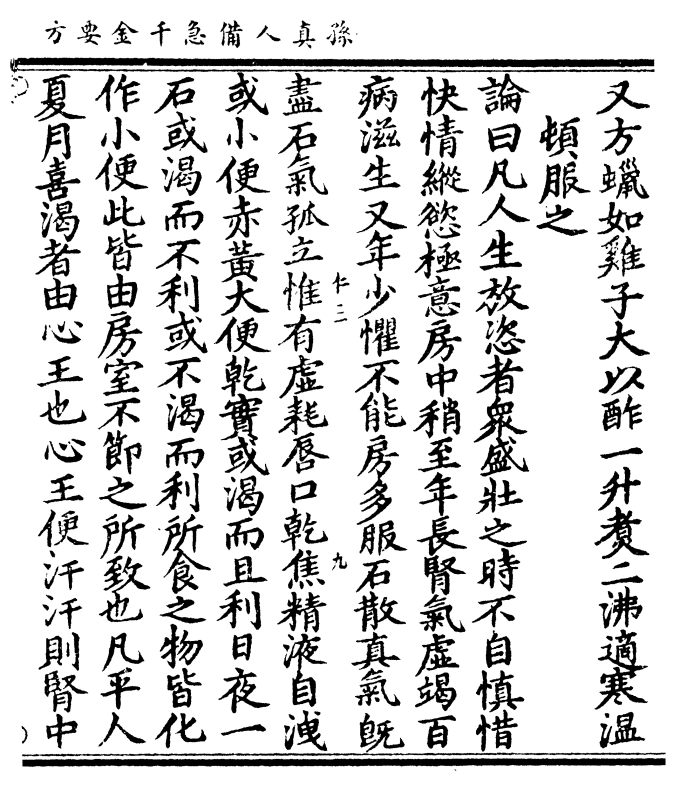 孫真人備急千金要方
又方蠟如雞子大以酢一升煑二沸適寒温
頓服之
論曰凡人生放恣者衆盛壯之時不自慎惜
快情縱慾極意房中稍至年長腎氣虛竭百
病滋生又年少懼不能房多服石散真氣既
盡石氣孤立惟有虛耗唇口乾焦精液自洩
仁三
九
或小便赤黃大便乾實或渴而且利日夜一
石或渴而不利或不渴而利所食之物皆化
作小便此皆由房室不節之所致也凡平人
夏月喜渴者由心王也心王便汗汗則腎中